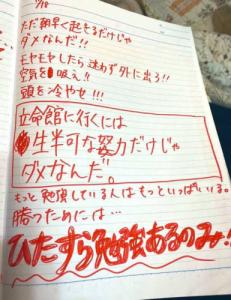 1/18
ただ朝早く起きるだけじゃ
ダメなんだ!!
モヤモヤしたら迷わず外に出ろ!!
空気を吸え!!
頭を冷やせ!!!
立命館に行くには
生半可な努力だけじゃ
ダメなんだ。
もっと勉強している人はもっといっぱいいる。
勝つためには…
ひたすら勉強あるのみ!!